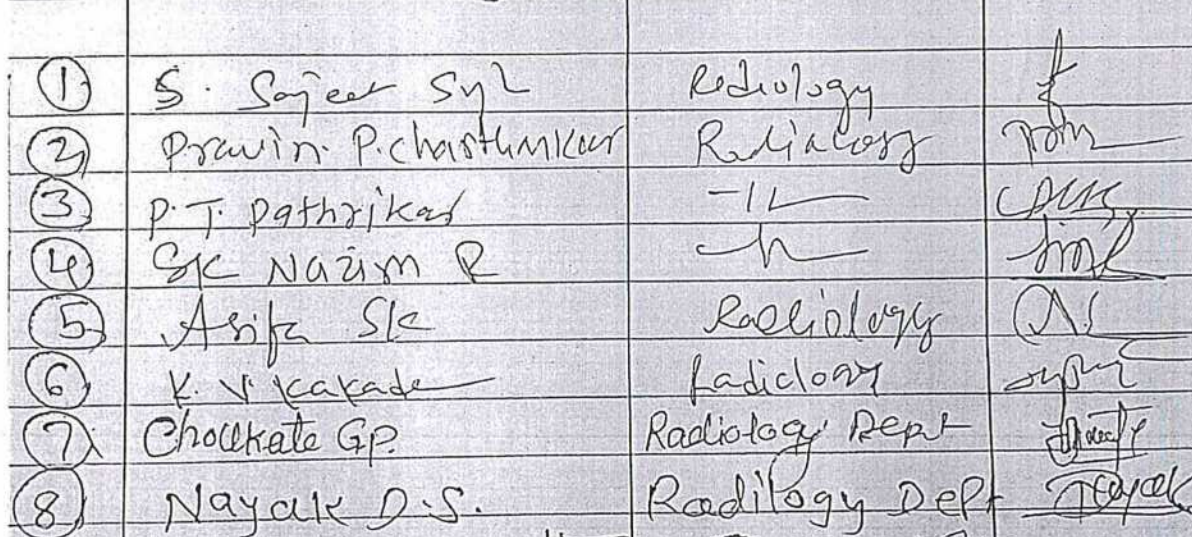 1 S. Sajeer Syl Rediology
2 Pravin. P. Chasthunkar Radialogy
3 P. T. Pathrikar -11-
4 SK Nazim R -11-
5 Asifa SK Radiology
6 K. V Kakade Radiology
7 Choukate GP. Radiology Dept
8 Nayak D.S. Radilogy Dept Nayak